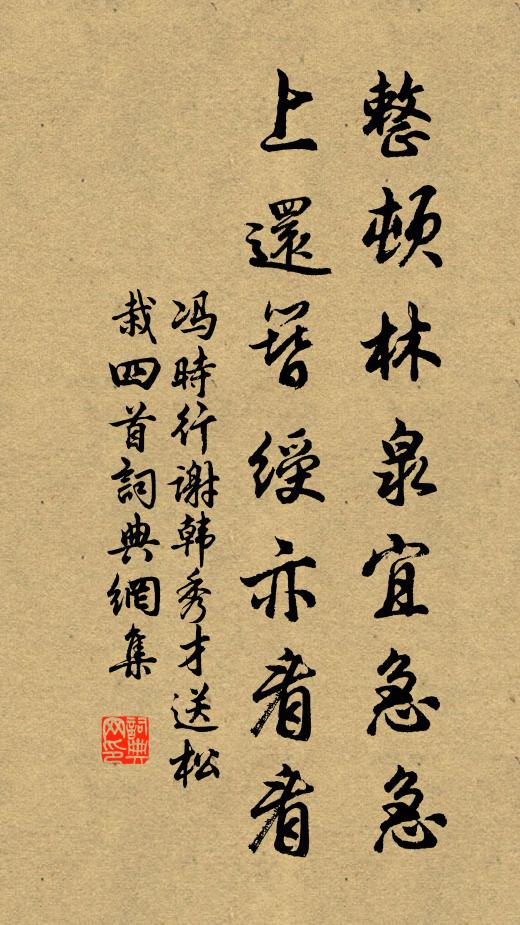 整頓林泉宜急急
上還簪綬亦看看
冯時行谢韩秀才送松
栽四首詞典網集
詞典网印